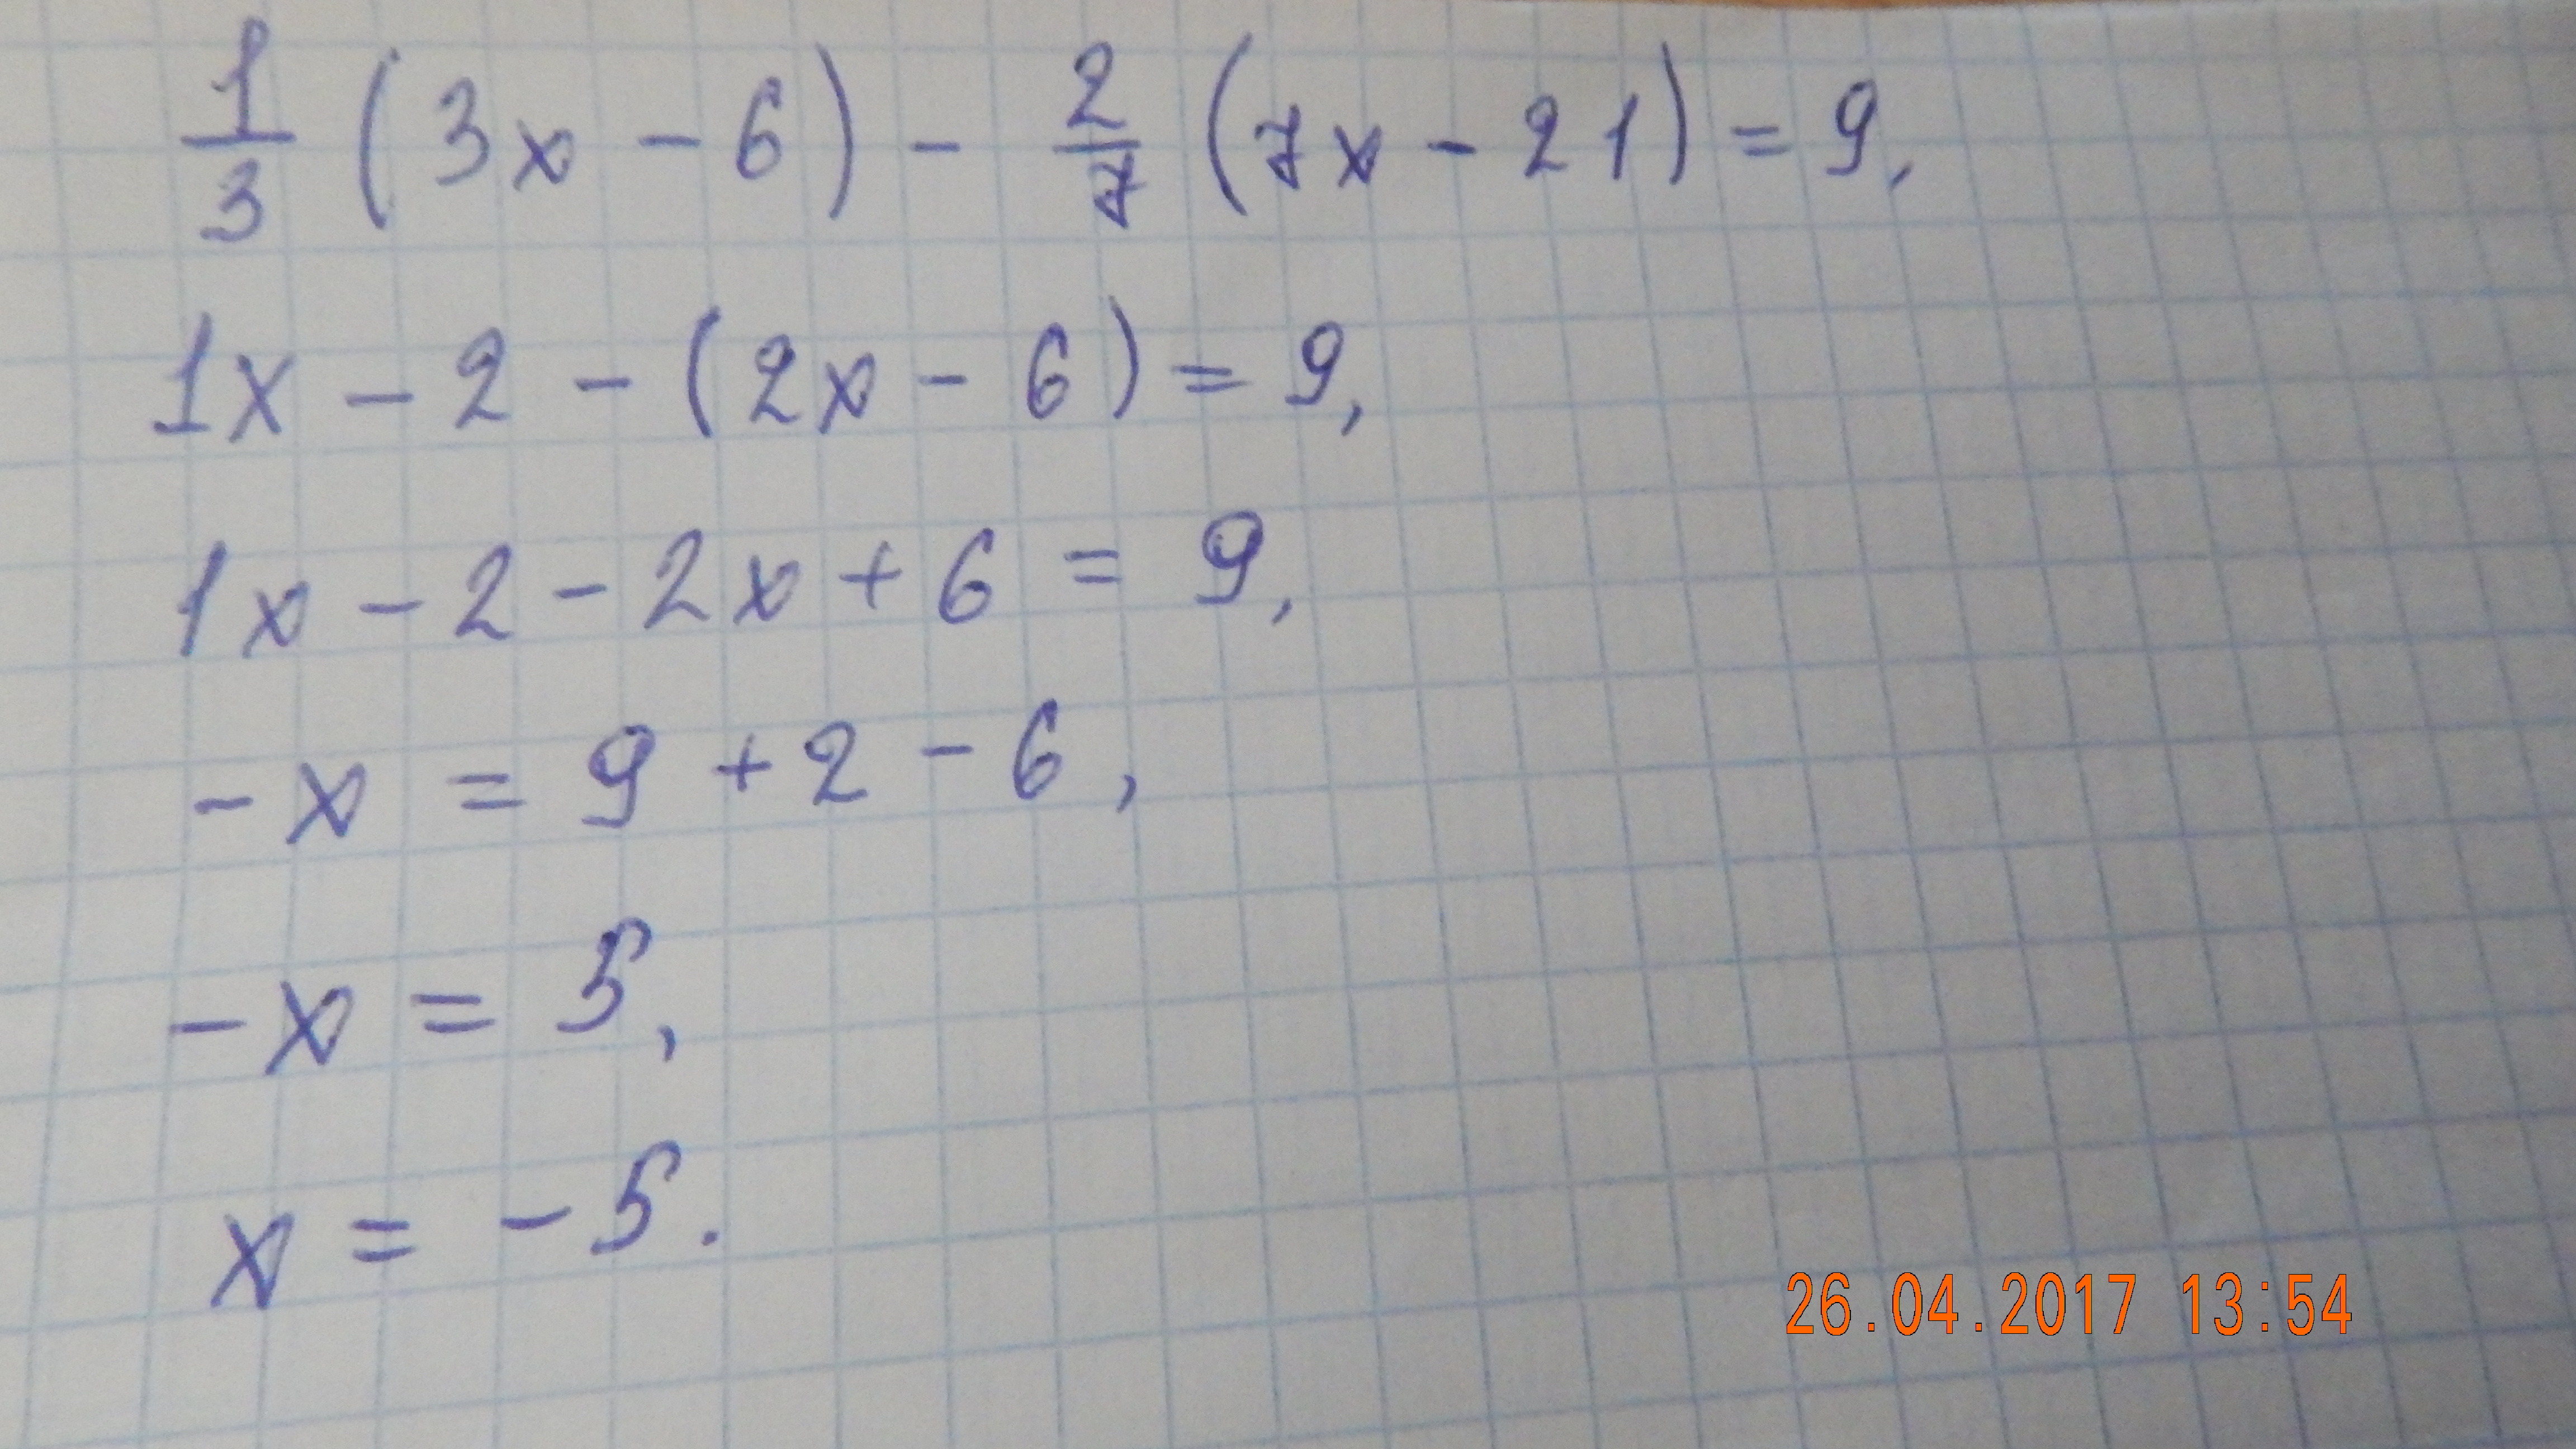 1/3 (3x - 6) - 2/7 (7x - 21) = 9,
1x - 2 - (2x - 6) = 9,
1x - 2 - 2x + 6 = 9,
-x = 9 + 2 - 6,
-x = 5,
x = -5.
26.04.2017 13:54